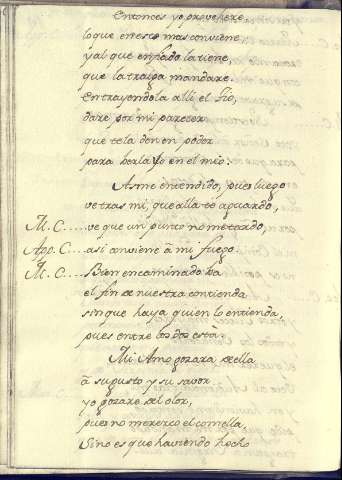 Entonces yo provehere
lo que en esso mas conviene,
y al que enfiado la tiene,
que la traiga mandare.
En trayendola alli el Tio,
dare por mi parecer
que te la den en poder
para verla yo en el mio.
Asme entendido, pues luego
ve tras mi, que alla te aguardo,
M. C.... ve que un punto no me tardo,
Apo. C.... asi conviene â mi fuego.
M. C.... Bien encaminado va
el fin de nuestra contienda
sin que haya quien lo entienda,
pues entre los dos està.
Mi Amo gozara de ella
â su gusto y su savor
yo gozare del olor,
pues no merezco el comella,
Sino es que haviendo hecho